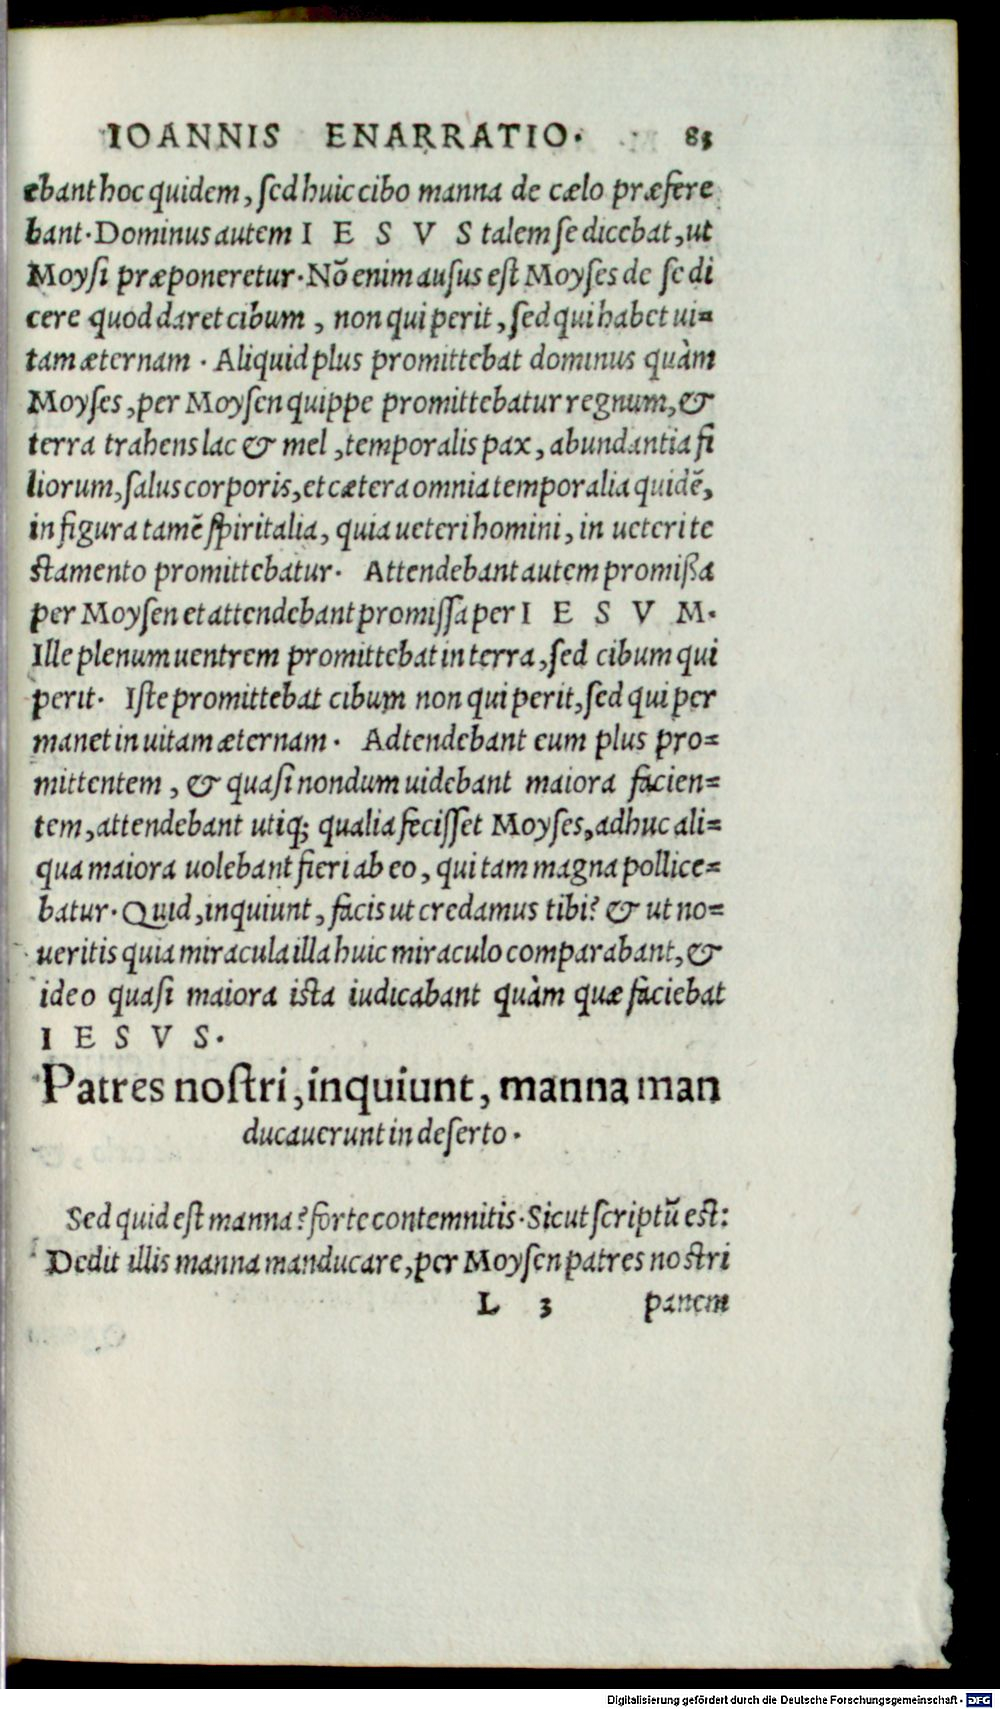 IOANNIS ENARRATIO. 83
ebant hoc quidem, sed huic cibo manna de cælo præfere
bant. Dominus autem I E S V S talem se dicebat, ut
Moysi præponeretur. Nõ enim ausus est Moyses de se di
cere quod daret cibum, non qui perit, sed qui habet ui=
tam æternam. Aliquid plus promittebat dominus quàm
Moyses, per Moysen quippe promittebatur regnum, &
terra trahens lac & mel, temporalis pax, abundantia fi
liorum, salus corporis, et cætera omnia temporalia quidẽ,
in figura tamẽ spiritalia, quia ueteri homini, in ueteri te
stamento promittebatur. Attendebant autem promißa
per Moysen et attendebant promissa per I E S V M.
Ille plenum uentrem promittebat in terra, sed cibum qui
perit. Iste promittebat cibum non qui perit, sed qui per
manet in uitam æternam. Adtendebant eum plus pro=
mittentem, & quasi nondum uidebant maiora facien=
tem, attendebant utiq; qualia fecisset Moyses, adhuc ali=
qua maiora uolebant fieri ab eo, qui tam magna pollice=
batur. Quid, inquiunt, facis ut credamus tibi? & ut no=
ueritis quia miracula illa huic miraculo comparabant, &
ideo quasi maiora ista iudicabant quàm quæ faciebat
I E S V S.
Patres nostri, inquiunt, manna man
ducauerunt in deserto.
Sed quid est manna? forte contemnitis. Sicut scriptũ est:
Dedit illis manna manducare, per Moysen patres nostri
L 3 panem
Digitalisierung gefördert durch die Deutsche Forschungsgemeinschaft - DFG